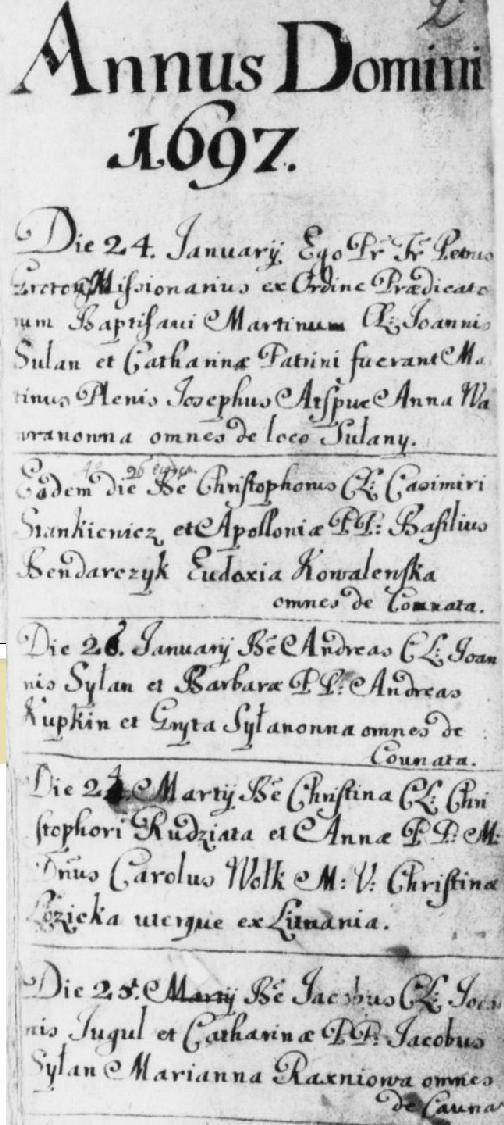 2
Annus Domini
1697.
Die 24. Januarij Ego Pr Fr Petrus
Missionarius ex Ordine Prædicato
rum Baptisavi Martinum CL: Joannis
Sulan et Catharinæ Patrini fuerant Ma
tinus Plenis Josephus Anna Wa
wranonna omnes de loco Sulany.
Eodem die Bē Christophorus CL: Casimiri
Stankieniez et Apolloniæ PP: Basilius
Bendarczyk Eudoxia Kowalenska
omnes de Counata.
Die 26. Januarij Bē Andreas CL: Joan
nis Sylan et Barbaræ PP: Andreas
Kupkin et Gryta Syłanonna omnes de
Counata.
Die 24 Martij Bē Christina CL: Chri
stophori Rudziata et Annæ PP: M:
Dnus Carolus Wolk M: V: Christina
Łozicka uterque ex Lituania.
Die 25. Martij Bē Jacobus CL: Joa
nis Jugul et Catharinæ PP: Jacobus
Sylan Marianna Raxniowa omnes
de Cauna